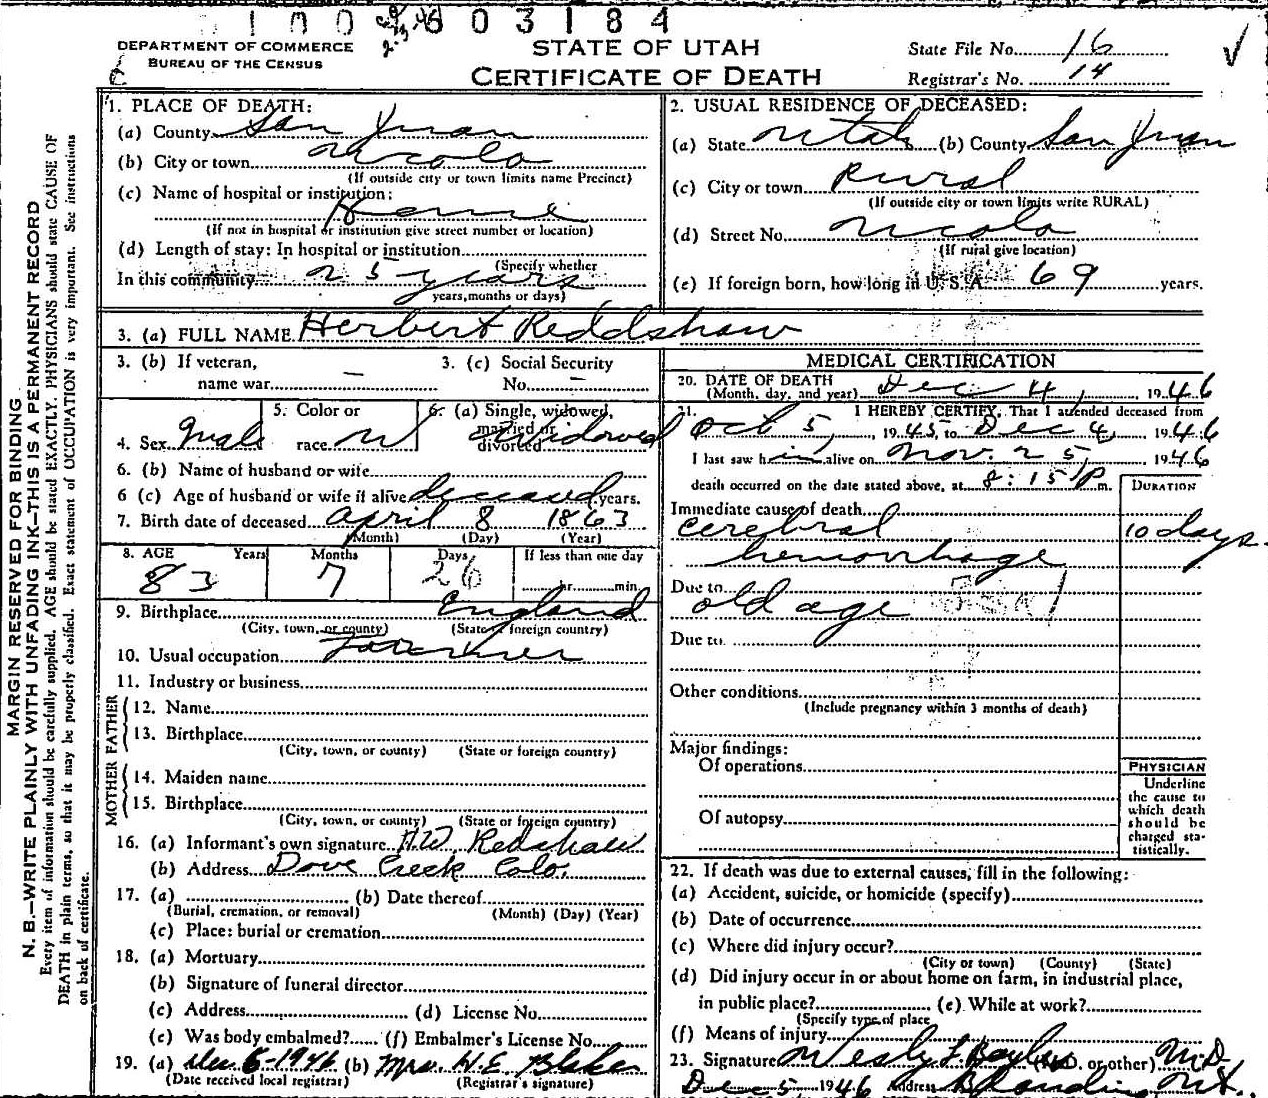 03184
DEPARTMENT OF COMMERCE
BUREAU OF THE CENSUS
STATE OF UTAH
CERTIFICATE OF DEATH
State File No. 16
Registrar's No. 14
MARGIN RESERVED FOR BINDING
N. B.—WRITE PLAINLY WITH UNFADING INK—THIS IS A PERMANENT RECORD
Every item of information should be carefully supplied. AGE should be stated EXACTLY. PHYSICIANS should state CAUSE OF
DEATH in plain terms, so that it may be properly classified. Exact statement of OCCUPATION is very important. See instructions
on back of certificate.
1. PLACE OF DEATH:
(a) County San Juan
(b) City or town Ucolo
(If outside city or town limits name Precinct)
(c) Name of hospital or institution:
Home
(If not in hospital or institution give street number or location)
(d) Length of stay: In hospital or institution
(Specify whether
In this community 25 years
years, months or days)
2. USUAL RESIDENCE OF DECEASED:
(a) State Utah (b) County San Juan
(c) City or town Rural
(If outside city or town limits write RURAL)
(d) Street No. Ucolo
(If rural give location)
(e) If foreign born, how long in U. S. A. 69 years.
3. (a) FULL NAME Herbert Reddshaw
3. (b) If veteran,
name war —
3. (c) Social Security
No. —
4. Sex Male
5. Color or
race W
6. (a) Single, widowed,
married or
divorced Widowed
6. (b) Name of husband or wife
6 (c) Age of husband or wife if alive deceased years.
7. Birth date of deceased April 8 1863
(Month) (Day) (Year)
8. AGE Years Months Days If less than one day
83 7 26 hr. min.
9. Birthplace England
(City, town, or county) (State or foreign country)
10. Usual occupation Farmer
11. Industry or business
FATHER
12. Name
13. Birthplace
(City, town, or county) (State or foreign country)
MOTHER
14. Maiden name
15. Birthplace
(City, town, or county) (State or foreign country)
16. (a) Informant's own signature H.W. Redshaw
(b) Address Dove Creek Colo.
17. (a) (b) Date thereof
(Burial, cremation, or removal) (Month) (Day) (Year)
(c) Place: burial or cremation
18. (a) Mortuary
(b) Signature of funeral director
(c) Address (d) License No.
(e) Was body embalmed? (f) Embalmer's License No.
19. (a) Dec. 6-1946 (b) Mrs. H.E. Blake
(Date received local registrar) (Registrar's signature)
MEDICAL CERTIFICATION
20. DATE OF DEATH
(Month, day, and year) Dec 4, 1946
21. I HEREBY CERTIFY, That I attended deceased from
Oct 5, 1945, to Dec 4, 1946
I last saw him alive on Nov. 25, 1946
death occurred on the date stated above, at 8:15 P m.
DURATION
Immediate cause of death
cerebral 10 days.
hemorrhage
Due to
old age
Due to
Other conditions
(Include pregnancy within 3 months of death)
Major findings:
Of operations
Of autopsy
PHYSICIAN
Underline
the cause to
which death
should be
charged sta-
tistically.
22. If death was due to external causes, fill in the following:
(a) Accident, suicide, or homicide (specify)
(b) Date of occurrence
(c) Where did injury occur?
(City or town) (County) (State)
(d) Did injury occur in or about home on farm, in industrial place,
in public place? (e) While at work?
(Specify type of place
(f) Means of injury
23. Signature Wesly L Bayles (M.D. or other) M.D.
Dec 5, 1946 Address Blanding, Ut.